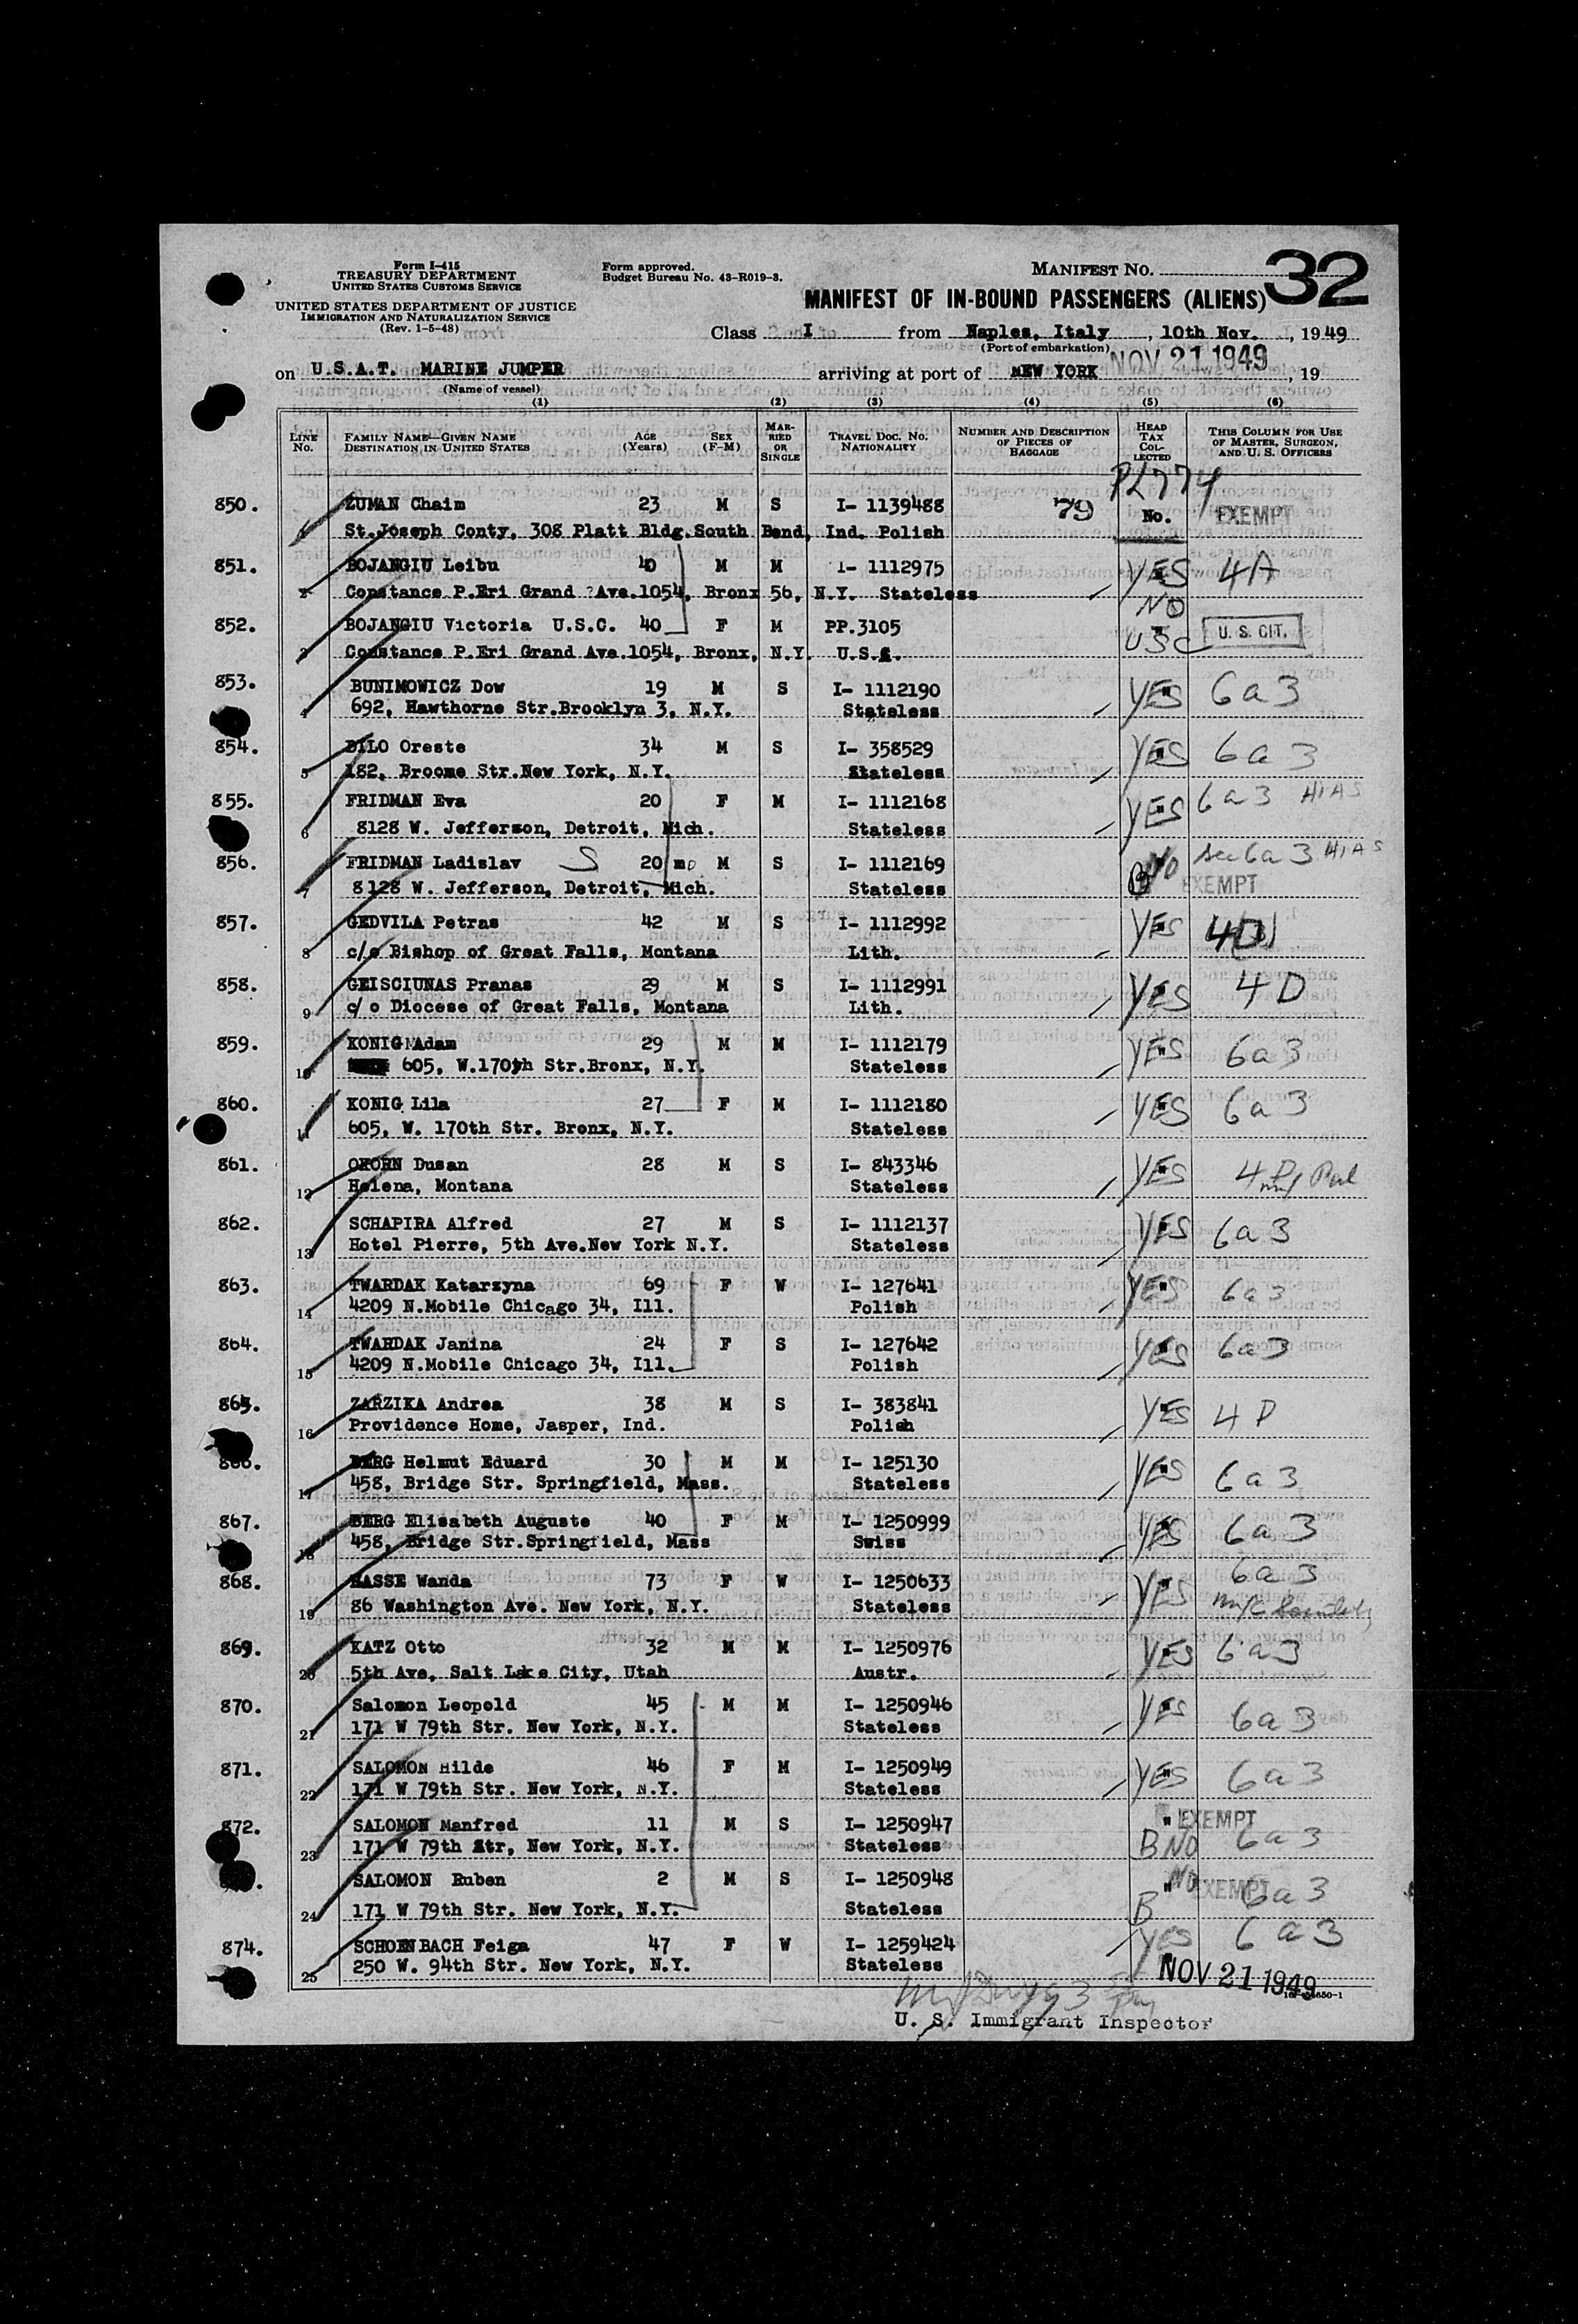 Form I-415
TREASURY DEPARTMENT
UNITED STATES CUSTOMS SERVICE
UNITED STATES DEPARTMENT OF JUSTICE
IMMIGRATION AND NATURALIZATION SERVICE
(Rev. 1-5-48)
Form approved.
Budget Bureau No. 43-R019-3.
MANIFEST NO. 32
MANIFEST OF IN-BOUND PASSENGERS (ALIENS)
Class I from Naples, Italy, 10th Nov., 1949
(Port of embarkation)
NOV 21 1949
on U.S.A.T. MARINE JUMPER arriving at port of NEW YORK, 19
(Name of vessel)
(1) (2) (3) (4) (5) (6)
LINE No. FAMILY NAME—GIVEN NAME DESTINATION IN UNITED STATES AGE (Years) SEX (F-M) MARRIED OR SINGLE TRAVEL DOC. NO. NATIONALITY NUMBER AND DESCRIPTION OF PIECES OF BAGGAGE HEAD TAX COLLECTED THIS COLUMN FOR USE OF MASTER, SURGEON, AND U. S. OFFICERS
PL774
850. ZUMAN Chaim 23 M S I- 1139488 79 No. EXEMPT
1 St.Joseph Conty, 308 Platt Bldg.South Bend, Ind. Polish
851. BOJANGIU Leibu 40 M M I- 1112975 YES 4A
2 Constance P.Eri Grand ?Ave.1054, Bronx 56, N.Y. Stateless
NO
852. BOJANGIU Victoria U.S.C. 40 F M PP.3105 USC U. S. CIT.
3 Constance P.Eri Grand Ave.1054, Bronx, N.Y. U.S.C.
853. BUNIMOWICZ Dow 19 M S I- 1112190 YES 6a3
4 692, Hawthorne Str.Brooklyn 3, N.Y. Stateless
854. DILO Oreste 34 M S I- 358529 YES 6a3
5 182, Broome Str.New York, N.Y. Stateless
855. FRIDMAN Eva 20 F M I- 1112168 YES 6a3 HIAS
6 8128 W. Jefferson, Detroit, Mich. Stateless
856. FRIDMAN Ladislav S 20 mo M S I- 1112169 NO sec 6a3 HIAS
7 8128 W. Jefferson, Detroit, Mich. Stateless B EXEMPT
857. GEDVILA Petras 42 M S I- 1112992 YES 4D
8 c/o Bishop of Great Falls, Montana Lith.
858. GEISCIUNAS Pranas 29 M S I- 1112991 YES 4D
9 c/ o Diocese of Great Falls, Montana Lith.
859. KONIG Adam 29 M M I- 1112179 YES 6a3
10 605, W.170th Str.Bronx, N.Y. Stateless
860. KONIG Lila 27 F M I- 1112180 YES 6a3
11 605, W. 170th Str. Bronx, N.Y. Stateless
861. OKORN Dusan 28 M S I- 843346 YES 4D
12 Helena, Montana Stateless
862. SCHAPIRA Alfred 27 M S I- 1112137 YES 6a3
13 Hotel Pierre, 5th Ave.New York N.Y. Stateless
863. TWARDAK Katarzyna 69 F W I- 127641 YES 6a3
14 4209 N.Mobile Chicago 34, Ill. Polish
864. TWARDAK Janina 24 F S I- 127642 YES 6a3
15 4209 N.Mobile Chicago 34, Ill. Polish
865. ZARZIKA Andrea 38 M S I- 383841 YES 4D
16 Providence Home, Jasper, Ind. Polish
866. BERG Helmut Eduard 30 M M I- 125130 YES 6a3
17 458, Bridge Str. Springfield, Mass. Stateless
867. BERG Elisabeth Auguste 40 F M I- 1250999 YES 6a3
18 458, Bridge Str.Springfield, Mass Swiss
868. HASSE Wanda 73 F W I- 1250633 YES 6a3
19 86 Washington Ave. New York, N.Y. Stateless
869. KATZ Otto 32 M M I- 1250976 YES 6a3
20 5th Ave, Salt Lake City, Utah Austr.
870. Salomon Leopold 45 M M I- 1250946 YES 6a3
21 171 W 79th Str. New York, N.Y. Stateless
871. SALOMON Hilde 46 F M I- 1250949 YES 6a3
22 171 W 79th Str. New York, N.Y. Stateless
872. SALOMON Manfred 11 M S I- 1250947 " EXEMPT
23 171 W 79th Str, New York, N.Y. Stateless B NO 6a3
SALOMON Ruben 2 M S I- 1250948 " NO EXEMPT 6a3
24 171 W 79th Str. New York, N.Y. Stateless B
874. SCHOENBACH Feiga 47 F W I- 1259424 yes 6a3
25 250 W. 94th Str. New York, N.Y. Stateless
NOV 21 1949
U. S. Immigrant Inspector